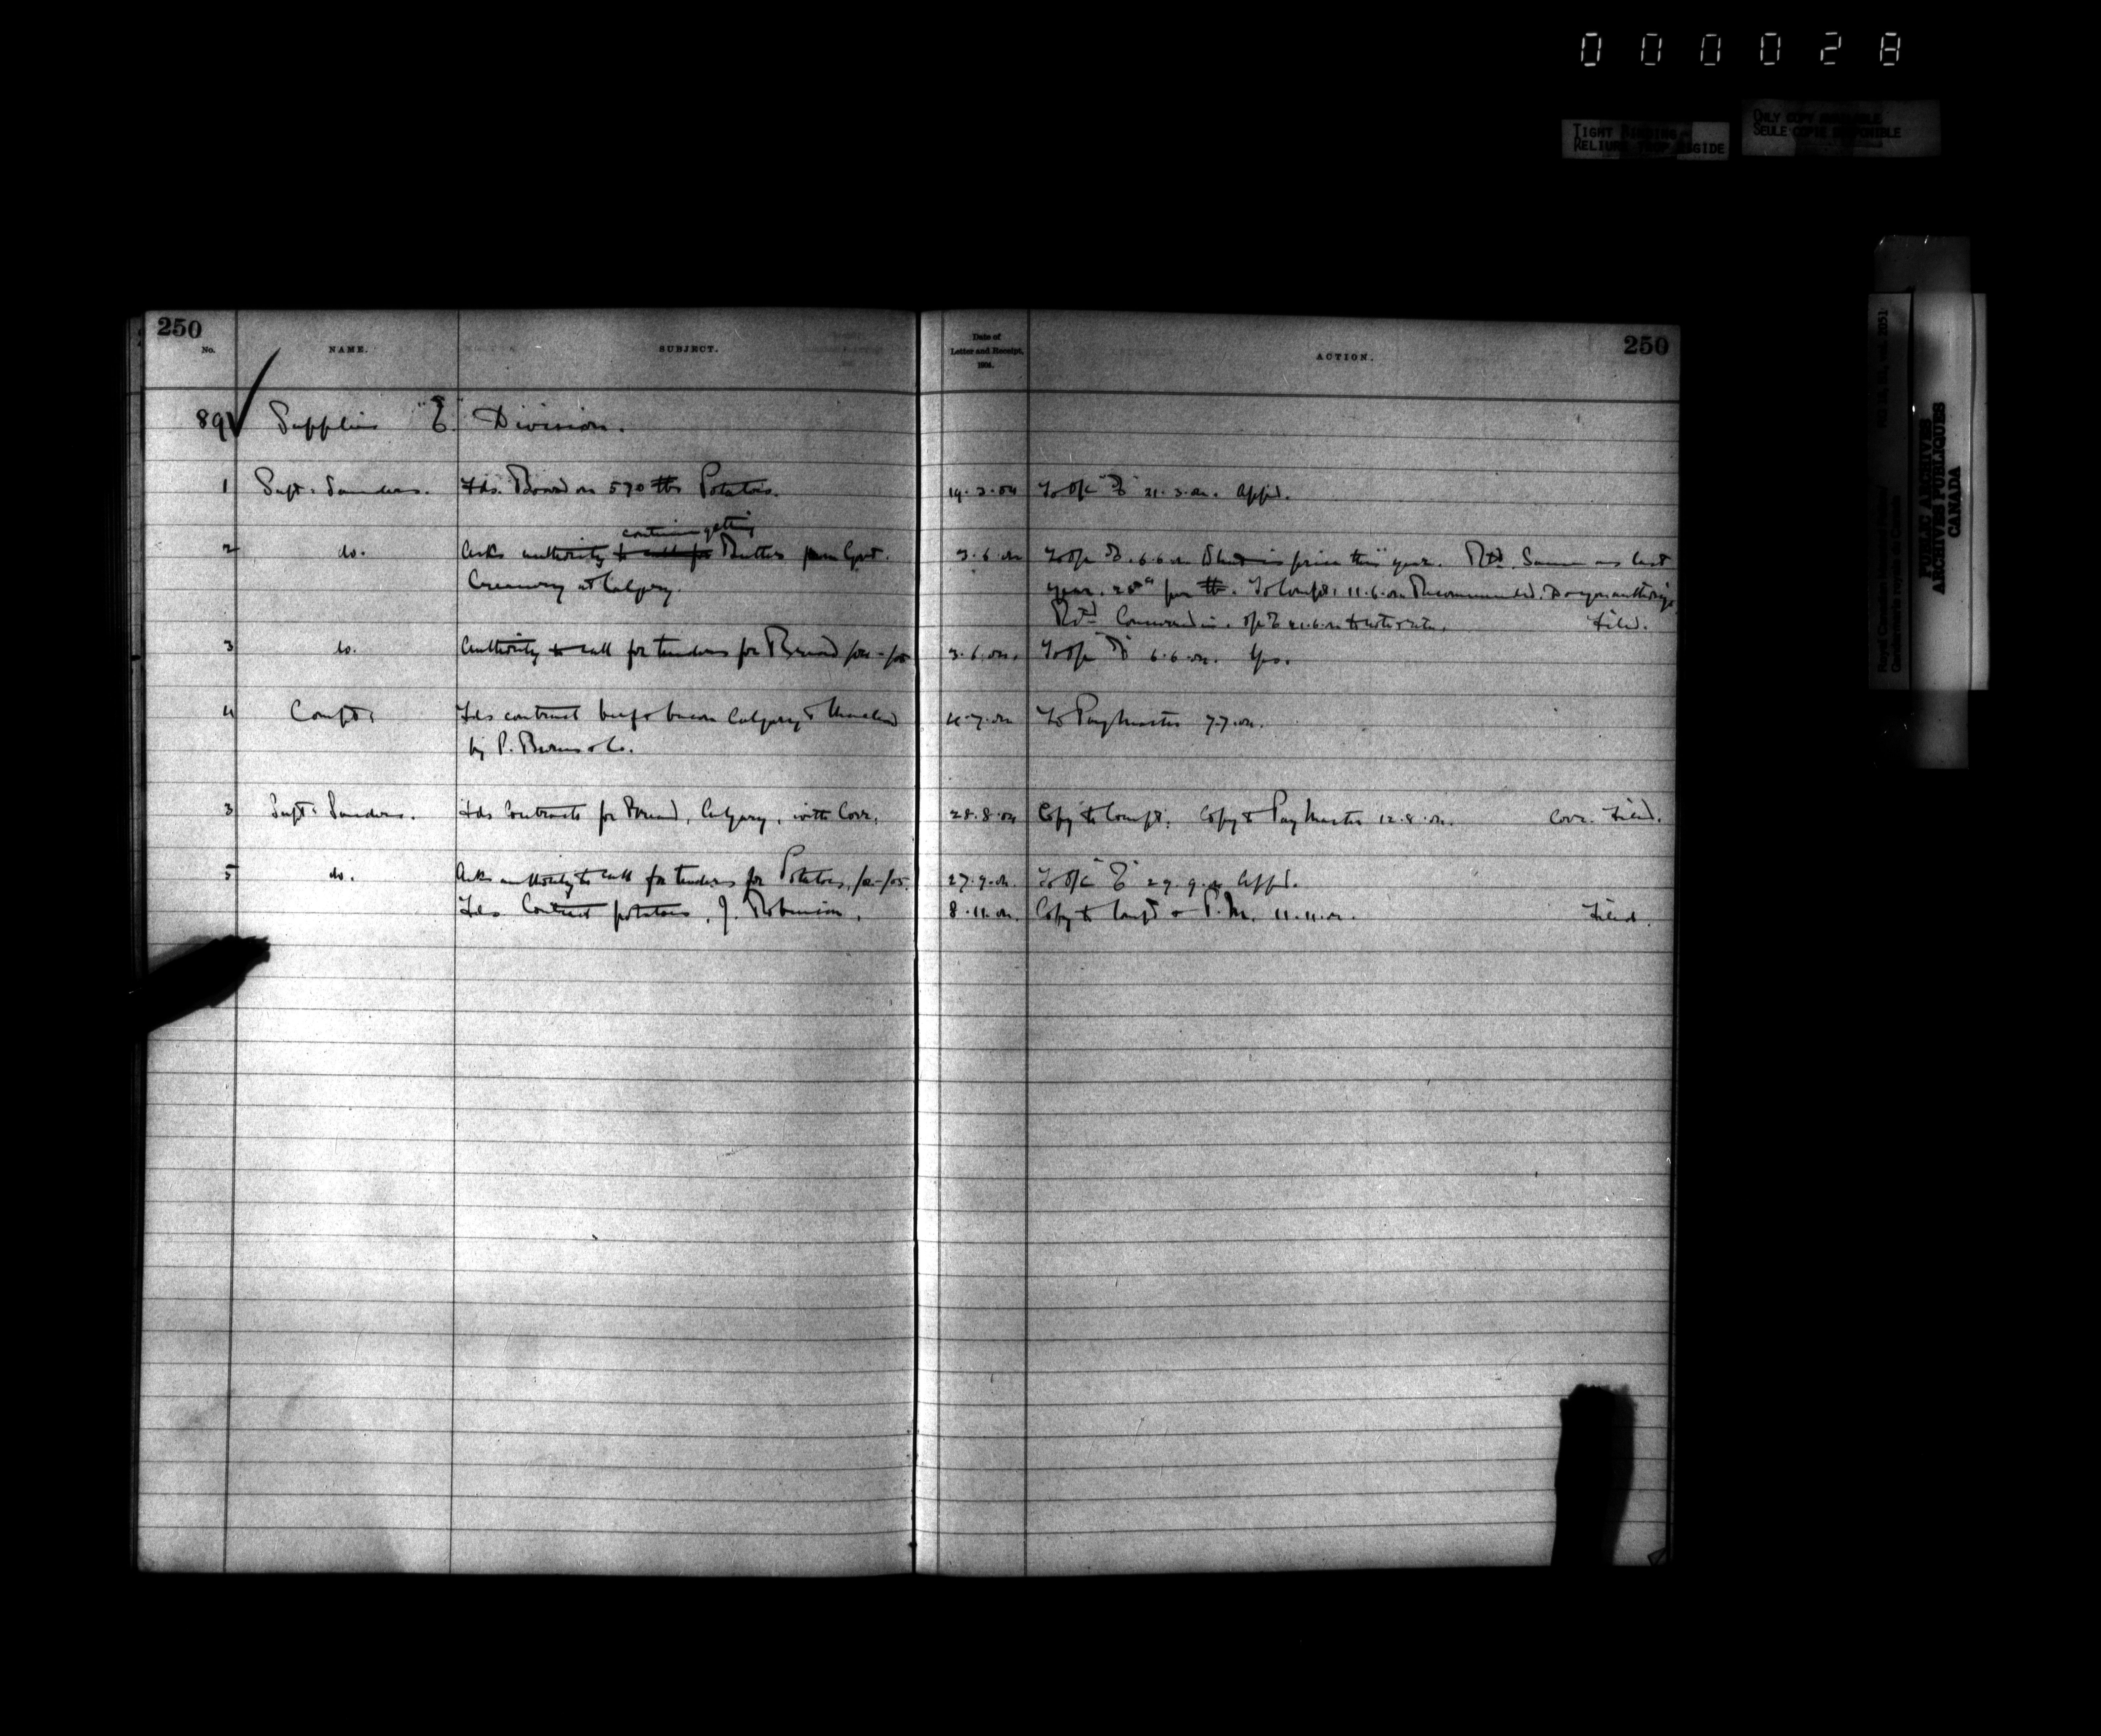 000028
TIGHT BINDING
RELIURE TROP RIGIDE
ONLY COPY AVAILABLE
SEULE COPIE DISPONIBLE
PUBLIC ARCHIVES
ARCHIVES PUBLIQUES
CANADA
250
No. NAME. SUBJECT. Date of Letter and Receipt, 1904. ACTION.
250
89 Supplies "E" Division.
1 Supt. Sanders. Fds. Board on 570 lbs Potatoes. 19.3.04 To O/C "E" 21.3.04. Appd.
continue getting
2 do. Asks authority to call for Butter from Govt. 3.6.04 To O/C "E" 6.6.04 What is price this year. Rtd. Same as last
Creamery at Calgary. year. per lb. To Compt. 11.6.04 Recommended. Do you authorize
Rtd Filed.
3 do. Authority to call for tenders for Bread /04-/05 3.6.04. To O/C "E" 6.6.04. Yes.
4 Compt. Fds contract beef & bacon Calgary & Macleod 4.7.04 To Paymaster 7.7.04.
by P. Burns & Co.
3 Supt. Sanders. Fds Contracts for Bread, Calgary, with Corr. 28.8.04 Copy to Compt. Copy to Paymaster 12.8.04. Corr. Filed.
5 do. Asks authority to call for tenders for Potatoes, /04-/05. 27.9.04. To O/C "E" 29.9.04 Appd.
Fds Contract potatoes, J. Robinson. 8.11.04. Copy to Compt & P.M. 11.11.04. Filed.